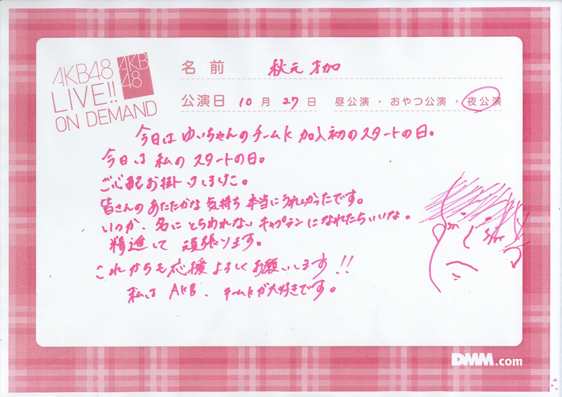 AKB48
LIVE!!
ON DEMAND
AKB
48
名前 秋元才加
公演日 10月27日 昼公演・おやつ公演・夜公演
今日は ゆいちゃんのチームK 加入初のスタートの日。
今日は 私の スタートの日。
ご心配お掛けしました。
皆さんの あたたかな 気持ち 本当に うれしかったです。
いつか、名に とらわれない キャプテンに なれたらいいな。
精進して 頑張ります。
これからも 応援 よろしく お願いします!!
私は AKB、チームKが大好きです。
DMM.com